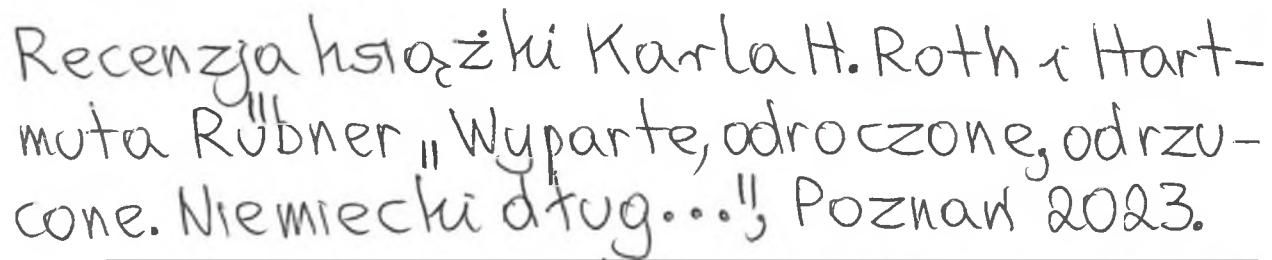 Recenzja książki Karla H. Roth i Hart-
muta Rübner „Wyparte, odroczone, odrzu-
cone. Niemiecki dług...", Poznań 2023.